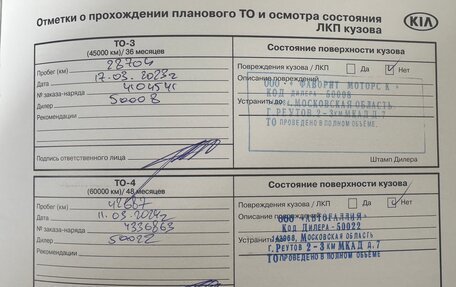 Отметки о прохождении планового ТО и осмотра состояния
ЛКП кузова
KIA
ТО-3
(45000 км)/ 36 месяцев
Состояние поверхности кузова
Пробег (км) 28704
Дата 17.03.2023г
№ заказа-наряда 4104541
Дилер 50008
Рекомендации
Подпись ответственного лица
Повреждения кузова / ЛКП Да Нет
Описание повреждений
Устранить до:
ООО " ФАВОРИТ МОТОРС К "
КОД ДИЛЕРА 50008
МОСКОВСКАЯ ОБЛАСТЬ
Г РЕУТОВ 2-3КМ МКАД Д.7
ТО ПРОВЕДЕНО В ПОЛНОМ ОБЪЕМЕ.
Штамп Дилера
ТО-4
(60000 км)/ 48 месяцев
Состояние поверхности кузова
Пробег (км) 42687
Дата 11.03.2024г
№ заказа-наряда 4336863
Дилер 50022
Рекомендации
Повреждения кузова / ЛКП Да Нет
Описание
Устранить
КОД ДИЛЕРА-50022
МОСКОВСКАЯ ОБЛАСТЬ
Г.РЕУТОВ 2-3КМ МКАД Д.7
ТО ПРОВЕДЕНО В ПОЛНОМ ОБЪЕМЕ